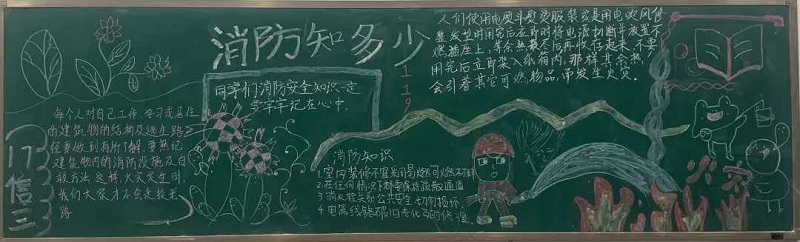 消防知多少
119
人们使用电熨斗熨烫服装或是用电吹风
整发型时用完后应即时将电源切断并放置不
燃插座上,等余热散尽后再收存起来,不要
用完后立即装入纸箱内,那样其余热
会引着其它可燃物品,而发生火灾.
同学们消防安全知识一定
要牢牢记在心中.
每个人对自己工作、学习或居住
的建筑物的结构及逃生路
径要做到有所了解,要熟记
建筑物内的消防设施及自
救方法,这样,火灾发生时,
我们大家才不会走投无
路
17信三
消防知识
1.室内装修不宜采用易燃可燃材料
2.在任何情况下都要保持疏散通道
3.消火栓关系公共安全切勿损坏
4.电器线路破旧老化及时修理